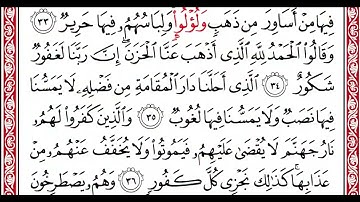 فِيهَا مِنْ أَسَاوِرَ مِن ذَهَبٍ وَلُؤْلُؤًا وَلِبَاسُهُمْ فِيهَا حَرِيرٌ ٣٣
وَقَالُوا۟ ٱلْحَمْدُ لِلَّهِ ٱلَّذِىٓ أَذْهَبَ عَنَّا ٱلْحَزَنَ إِنَّ رَبَّنَا لَغَفُورٌ
شَكُورٌ ٣٤ ٱلَّذِىٓ أَحَلَّنَا دَارَ ٱلْمُقَامَةِ مِن فَضْلِهِۦ لَا يَمَسُّنَا
فِيهَا نَصَبٌ وَلَا يَمَسُّنَا فِيهَا لُغُوبٌ ٣٥ وَٱلَّذِينَ كَفَرُوا۟ لَهُمْ
نَارُ جَهَنَّمَ لَا يُقْضَىٰ عَلَيْهِمْ فَيَمُوتُوا۟ وَلَا يُخَفَّفُ عَنْهُم مِّنْ
عَذَابِهَا كَذَٰلِكَ نَجْزِى كُلَّ كَفُورٍ ٣٦ وَهُمْ يَصْطَرِخُونَ